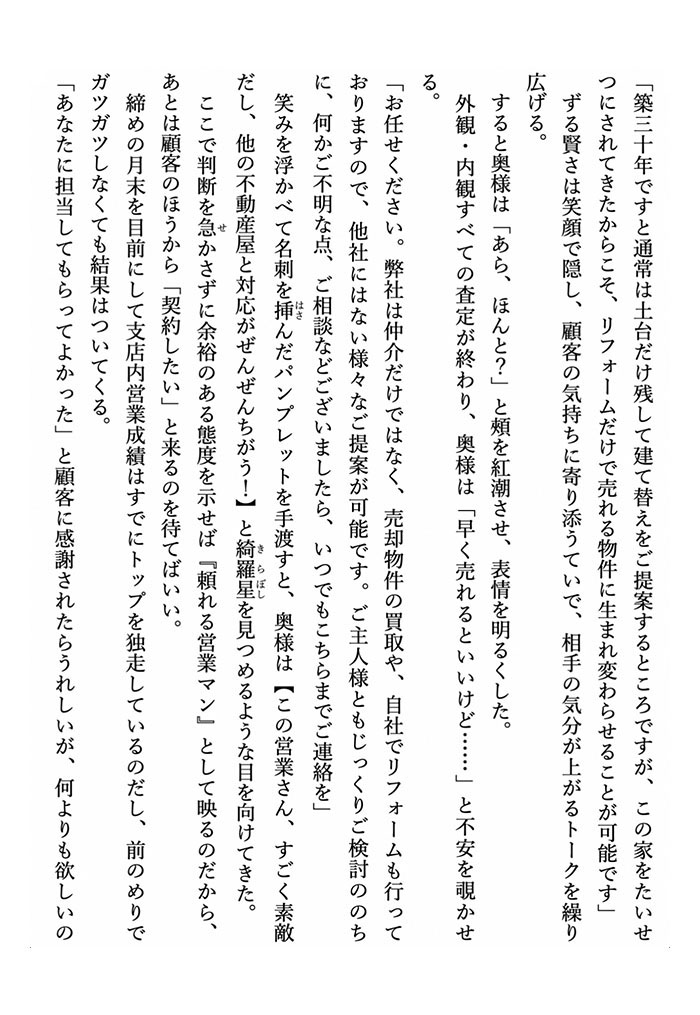 「築三十年ですと通常は土台だけ残して建て替えをご提案するところですが、この家をたいせ
つにされてきたからこそ、リフォームだけで売れる物件に生まれ変わらせることが可能です」
ずる賢さは笑顔で隠し、顧客の気持ちに寄り添うていで、相手の気分が上がるトークを繰り
広げる。
すると奥様は「あら、ほんと？」と頰を紅潮させ、表情を明るくした。
外観・内観すべての査定が終わり、奥様は「早く売れるといいけど……」と不安を覗かせ
る。
「お任せください。弊社は仲介だけではなく、売却物件の買取や、自社でリフォームも行って
おりますので、他社にはない様々なご提案が可能です。ご主人様ともじっくりご検討ののち
に、何かご不明な点、ご相談などございましたら、いつでもこちらまでご連絡を」
笑みを浮かべて名刺を挿はさんだパンプレットを手渡すと、奥様は【この営業さん、すごく素敵
だし、他の不動産屋と対応がぜんぜんちがう！】と綺羅星きらぼしを見つめるような目を向けてきた。
ここで判断を急せかさずに余裕のある態度を示せば『頼れる営業マン』として映るのだから、
あとは顧客のほうから「契約したい」と来るのを待てばいい。
締めの月末を目前にして支店内営業成績はすでにトップを独走しているのだし、前のめりで
ガツガツしなくても結果はついてくる。
「あなたに担当してもらってよかった」と顧客に感謝されたらうれしいが、何よりも欲しいの